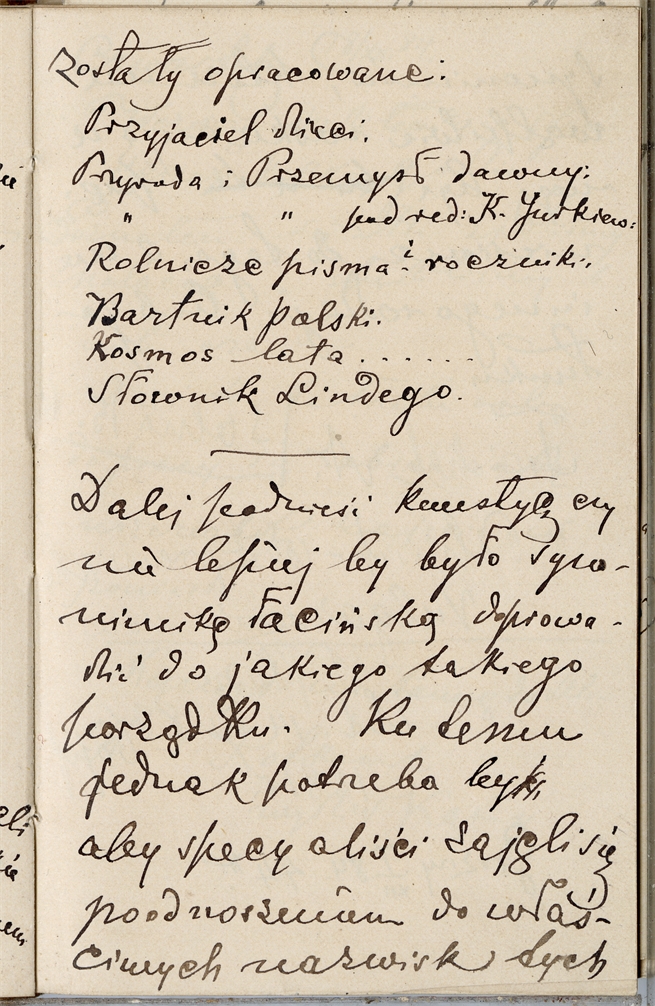 zostały opracowane:
Przyjaciel dzieci.
Przyroda i Przemysł dawny:
" " pod red: K. Jurkiew:
Rolnicze pisma i roczniki.
Bartnik polski.
Kosmos lata . . . . . .
Słownik Lindego.
Dalej podnieść kwestyę czy
nie lepiej by było syno-
nimikę łacińską doprowa-
dzić do jakiego takiego
porządku. Ku temu
jednak potrzeba
aby specyaliści zajęli się
poodnoszeniem do właś-
ciwych nazwisk tych